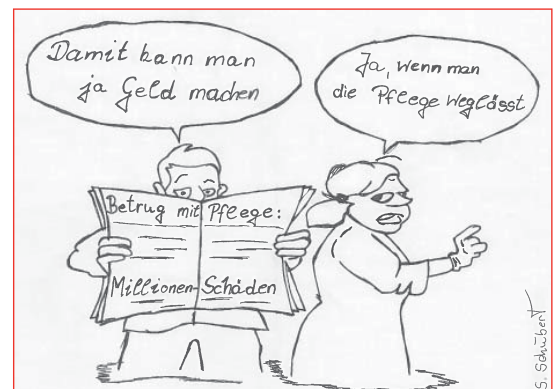 Damit kann man
ja Geld machen
Ja, wenn man
die Pflege weglässt
Betrug mit Pflege:
Millionen-Schäden
S. Schubert